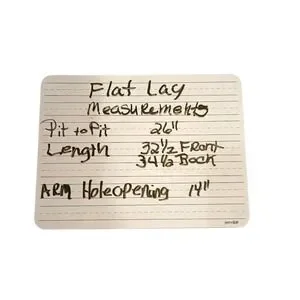 Flat Lay
Measurements
Pit to Pit 26"
Length 32 1/2 Front
34 1/2 Back
ARM Holeopening 14"